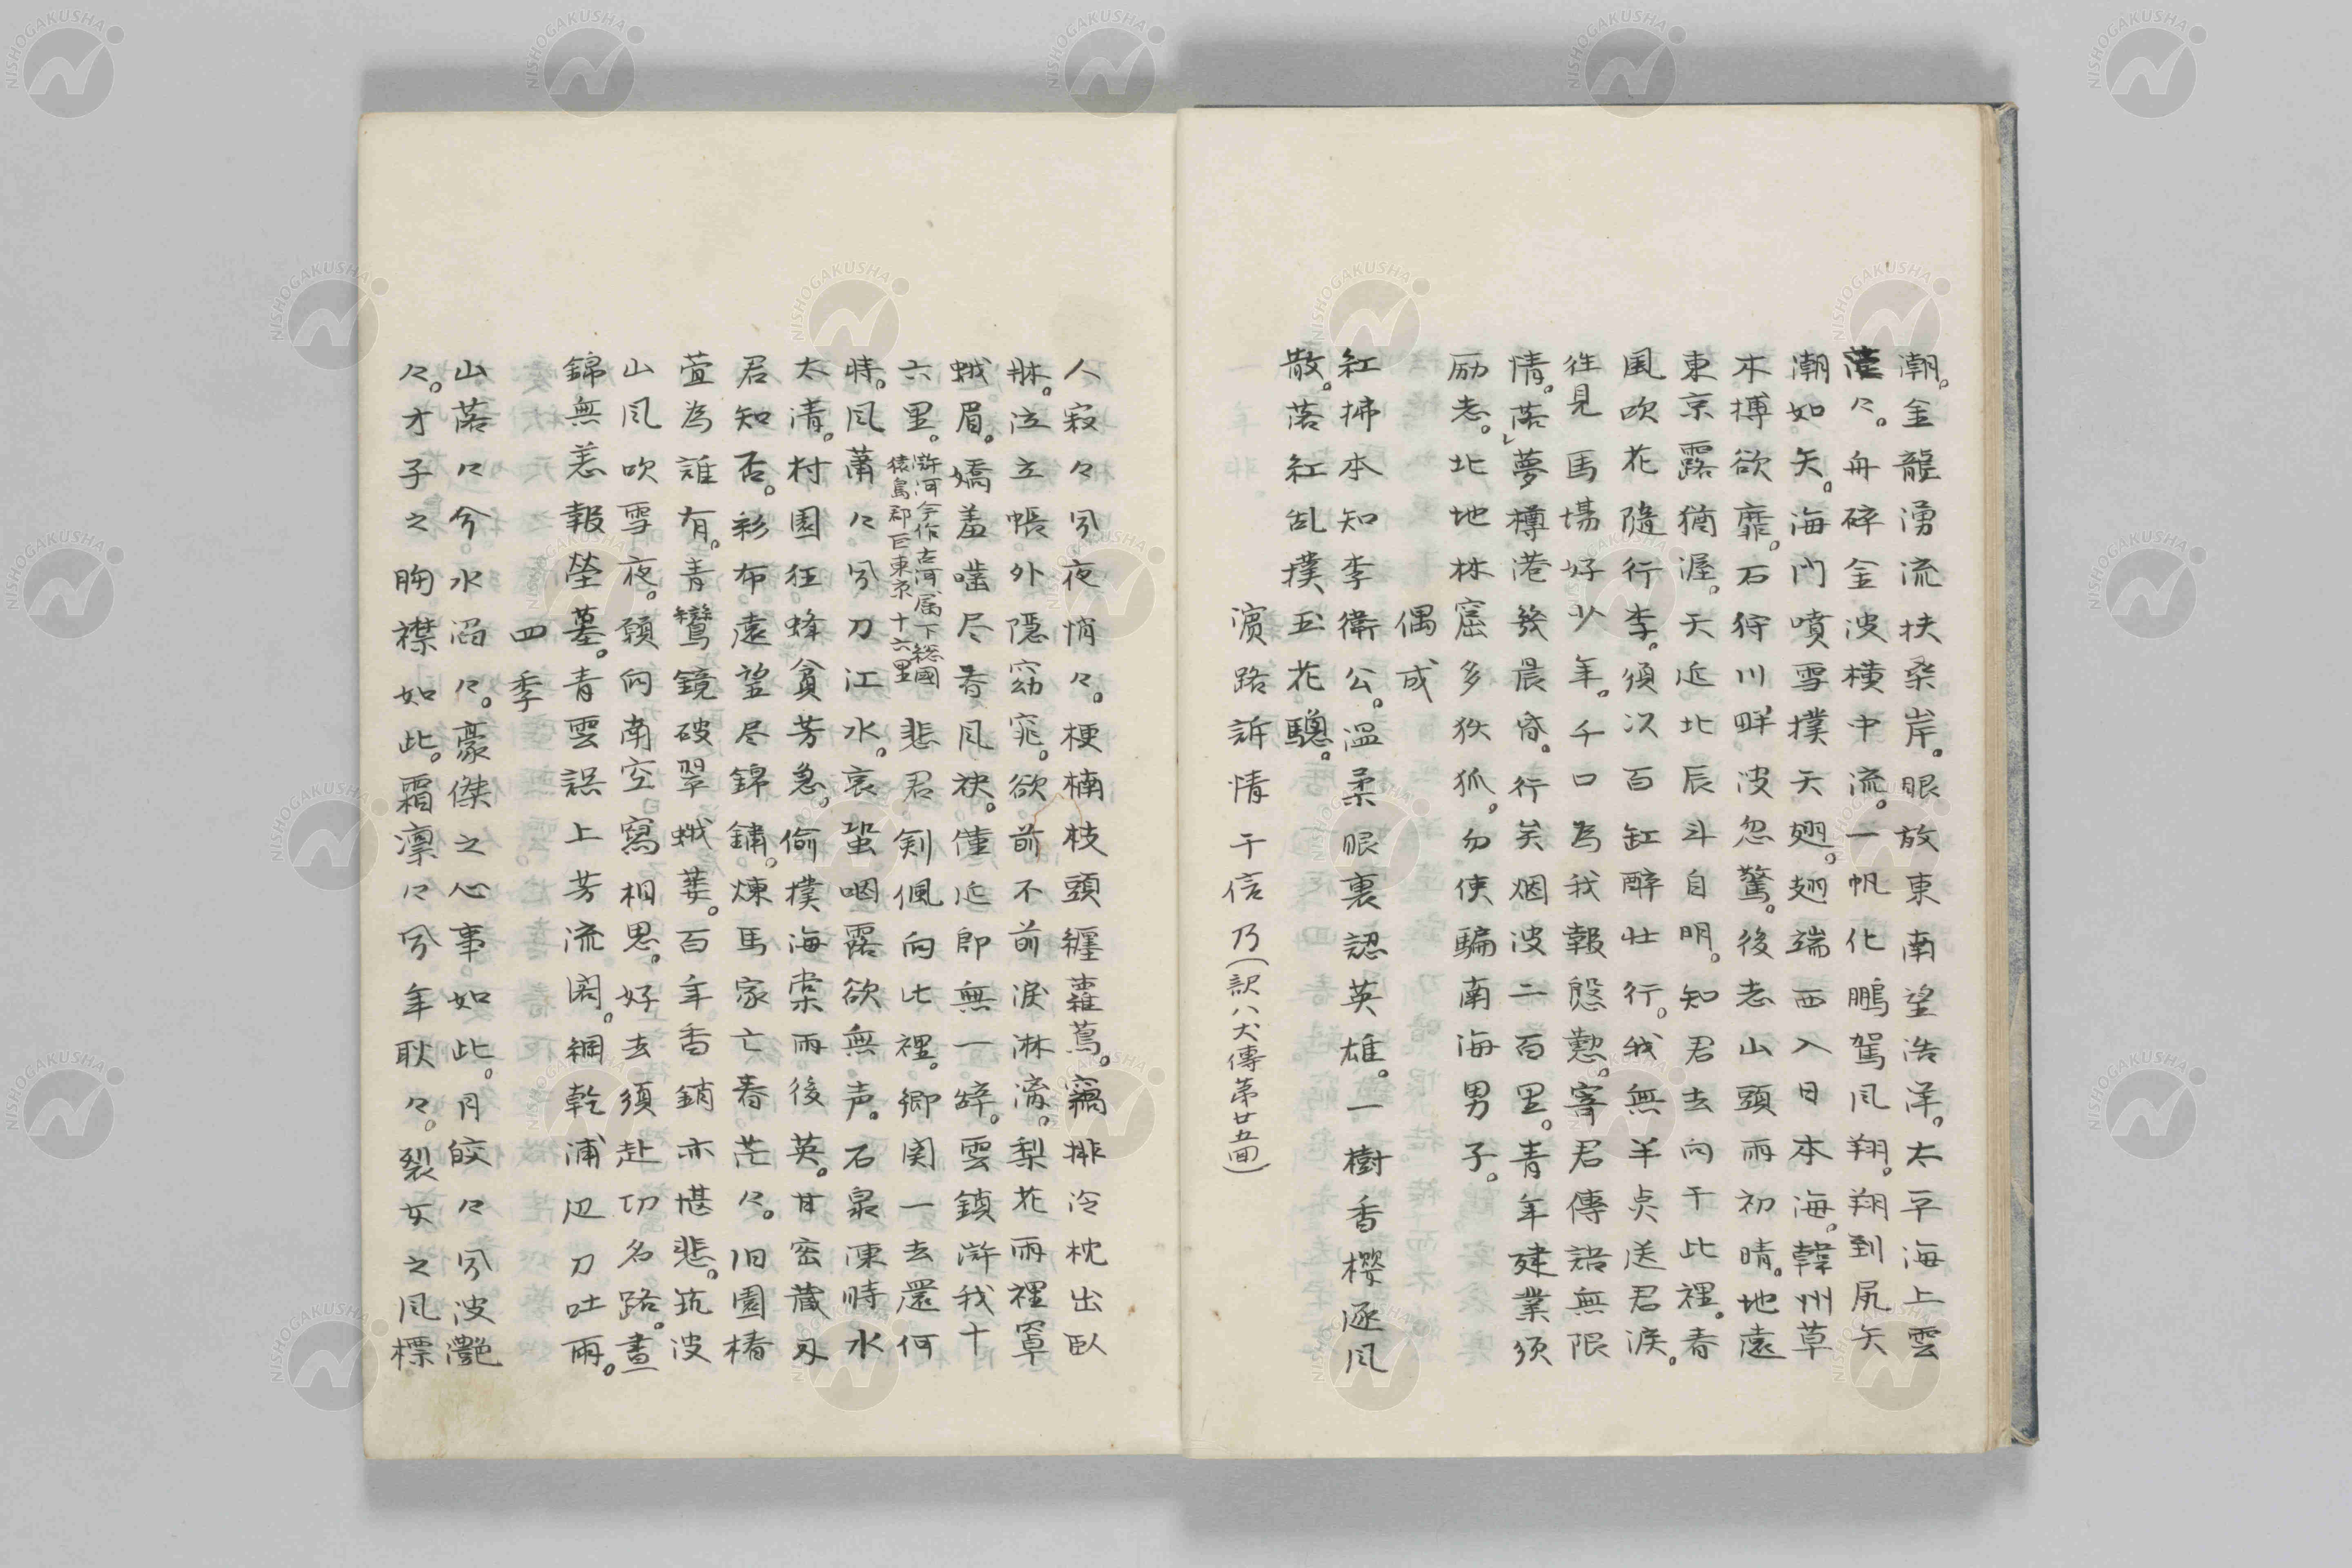 潮。金龍湧流扶桑岸。眼放東南望浩洋。太平海上雲
漠々。舟碎金波横中流。一帆化鵬駕風翔。翔到尻矢
潮如矢。海門噴雪撲天翅。翅端西入日本海。韓州草
木搏欲靡。石狩川畔波忽驚。後志山頭雨初晴。地遠
東京露猶渥。天近北辰斗自明。知君去向于此裡。春
風吹花隨行李。須次百缸醉壮行。我無羊炙送君淚。
往見馬場好少年。千口為我報慇懃。寄君傳語無限
情。落夢樽港發晨昏。行矣烟波二百里。青年建業須
励志。北地林窟多狄狐。勿使騙南海男子。
偶成
紅拂本知李衛公。温柔眼裏認英雄。一樹香櫻逐風
散。落紅乱撲玉花驄。
濵路訴情于信乃(訳八犬傳第廿五面)
人寂々兮夜悄々。梗楠枝頭纏蘿蔦。竊排冷枕出臥
牀。泣立帳外隠窈窕。欲前不前淚淋漓。梨花雨裡罩
蛾眉。嬌羞噛尽春風袂。僅近即無一辞。雲鎖滸我十
六里。滸河今作古河属下総國猿島郡巨東京十六里悲君剣佩向此裡。郷関一去還何
時。風蕭々兮刀江水。哀蛩咽露欲無声。石泉凍時水
太清。村園狂蜂貪芳急。偷撲海棠雨後英。甘密蔵刄
君知否。彩布遠望尽錦鏽。煉馬家亡春茫々。旧園椿
萱為誰有。青鸞鏡破翠蛾萎。百年香銷亦堪悲。筑波
山風吹雪夜。顔向南空寫相思。好去須赴功名路。晝
錦無恙報塋墓。青雲誤上芳流閣。綱乾浦辺刀吐雨。
四季
山落々兮水滔々。豪傑之心事如此。月皎々兮波灔
々。才子之胸襟如此。霜凛々兮年耿々。裂女之風標